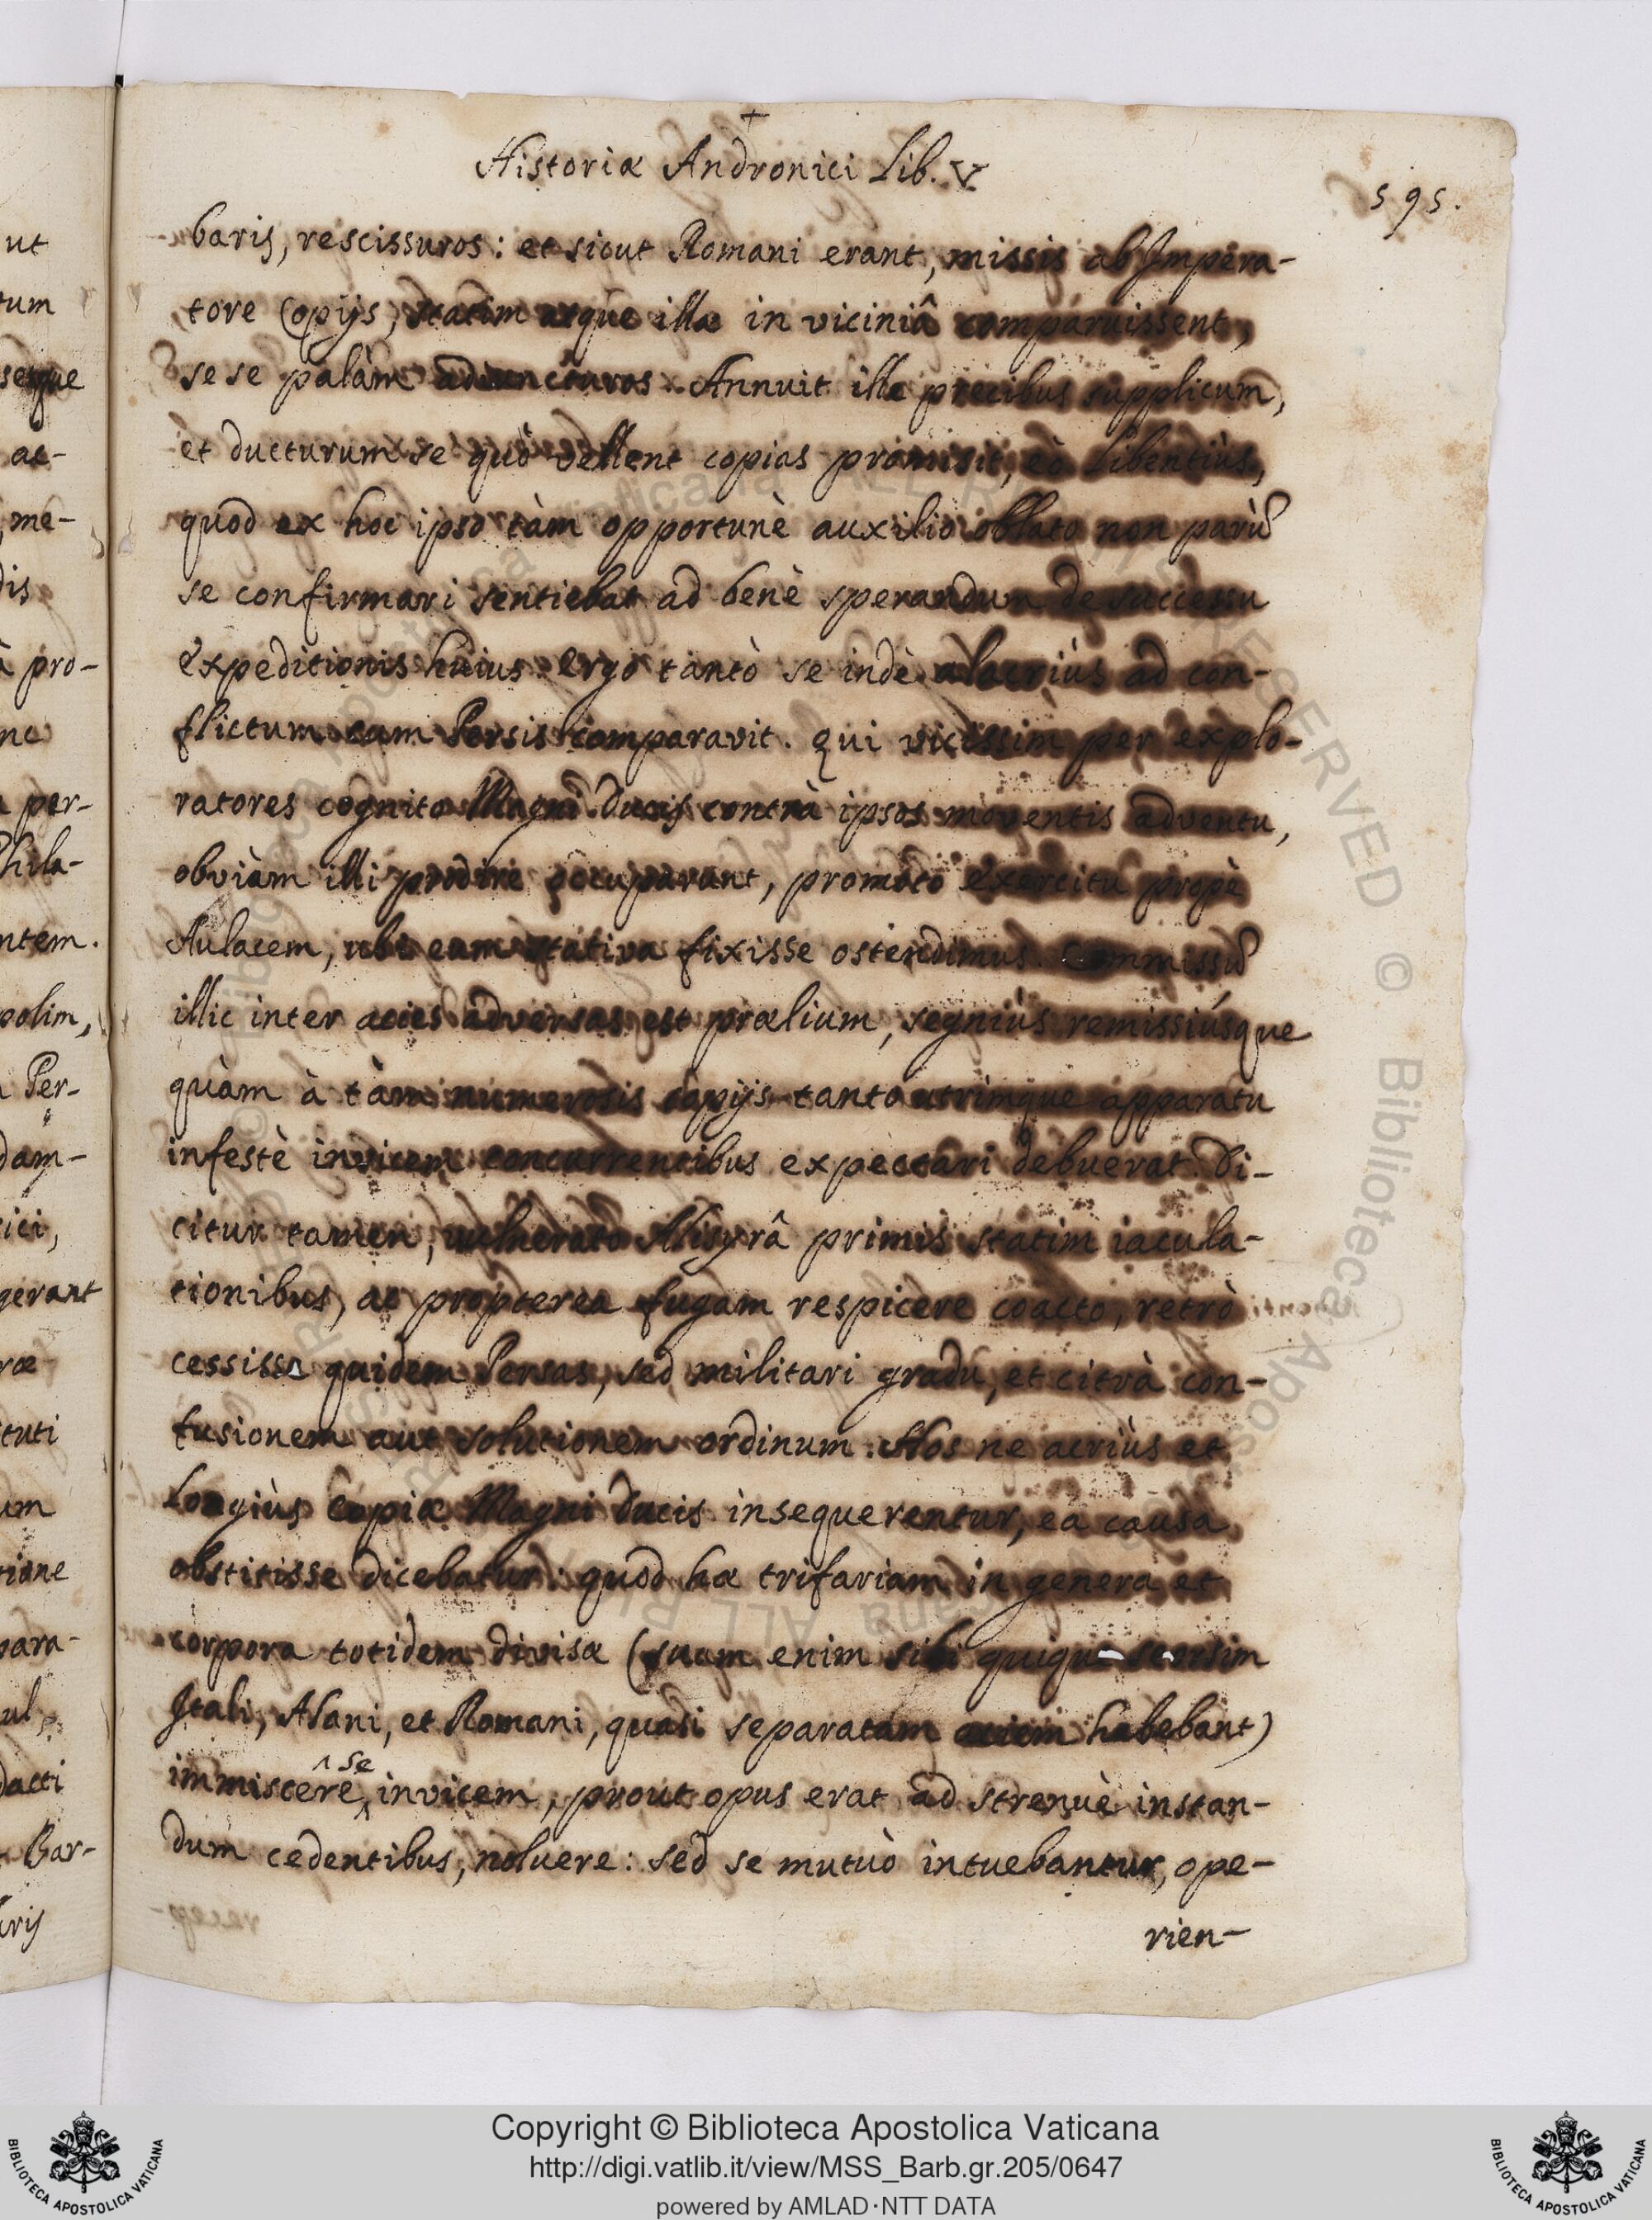 Historiæ Andronici Lib. V
595.
baris, rescissuros: et sicut Romani erant, missis ab Impera-
tore Copijs, statim atque illæ in viciniâ comparuissent,
se se palàm adiuncturos. Annuit ille precibus supplicum,
et ducturum se quò vellent copias promisit, eò libentiùs,
quod ex hoc ipso tàm opportunè auxilio oblato non parũ
se confirmari sentiebat ad benè sperandum de successu
expeditionis huius. ergo tantò se indè alacriùs ad con-
flictum cum Persis comparavit. qui vicissim per explo-
ratores cognito Magni Ducis contrà ipsos moventis adventu,
obviàm illi prodire occuparunt, promoto exercitu propè
Aulacem, ubi eum stativa fixisse ostendimus. Commissũ
illic inter acies adversas est prælium, segniùs remissiúsque
quàm à tàm numerosis copijs tanto utrimque apparatu
infestè invicem concurrentibus expectari debuerat. Di-
citur tamen, vulnerato Alisyrâ primis statim iacula-
tionibus, ac propterea fugam respicere coacto, retrò
cessisse quidem Persas, sed militari gradu, et citrà con-
fusionem aut solutionem ordinum. Hos ne acriùs et
longiùs Copiæ Magni Ducis insequerentur, ea causa
obstitisse dicebatur: quòd hæ trifariàm in genera et
corpora totidem divisæ (suam enim sibi quique seorsim
Itali, Alani, et Romani, quasi separatam aciem habebant)
^ se
immiscere ^ invicem, prout opus erat ad strenuè instan-
dum cedentibus, noluere: sed se mutuò intuebantur, ope-
rien-
ut
tum
seque
ac-
me-
dis
pro-
per-
hila-
ntem.
polim,
Per-
dam-
ici,
gerant
ræ
tuti
um
tione
para-
ul
dacti
Bar-
Copyright © Biblioteca Apostolica Vaticana
http://digi.vatlib.it/view/MSS_Barb.gr.205/0647
powered by AMLAD·NTT DATA
BIBLIOTECA APOSTOLICA VATICANA
BIBLIOTECA APOSTOLICA VATICANA